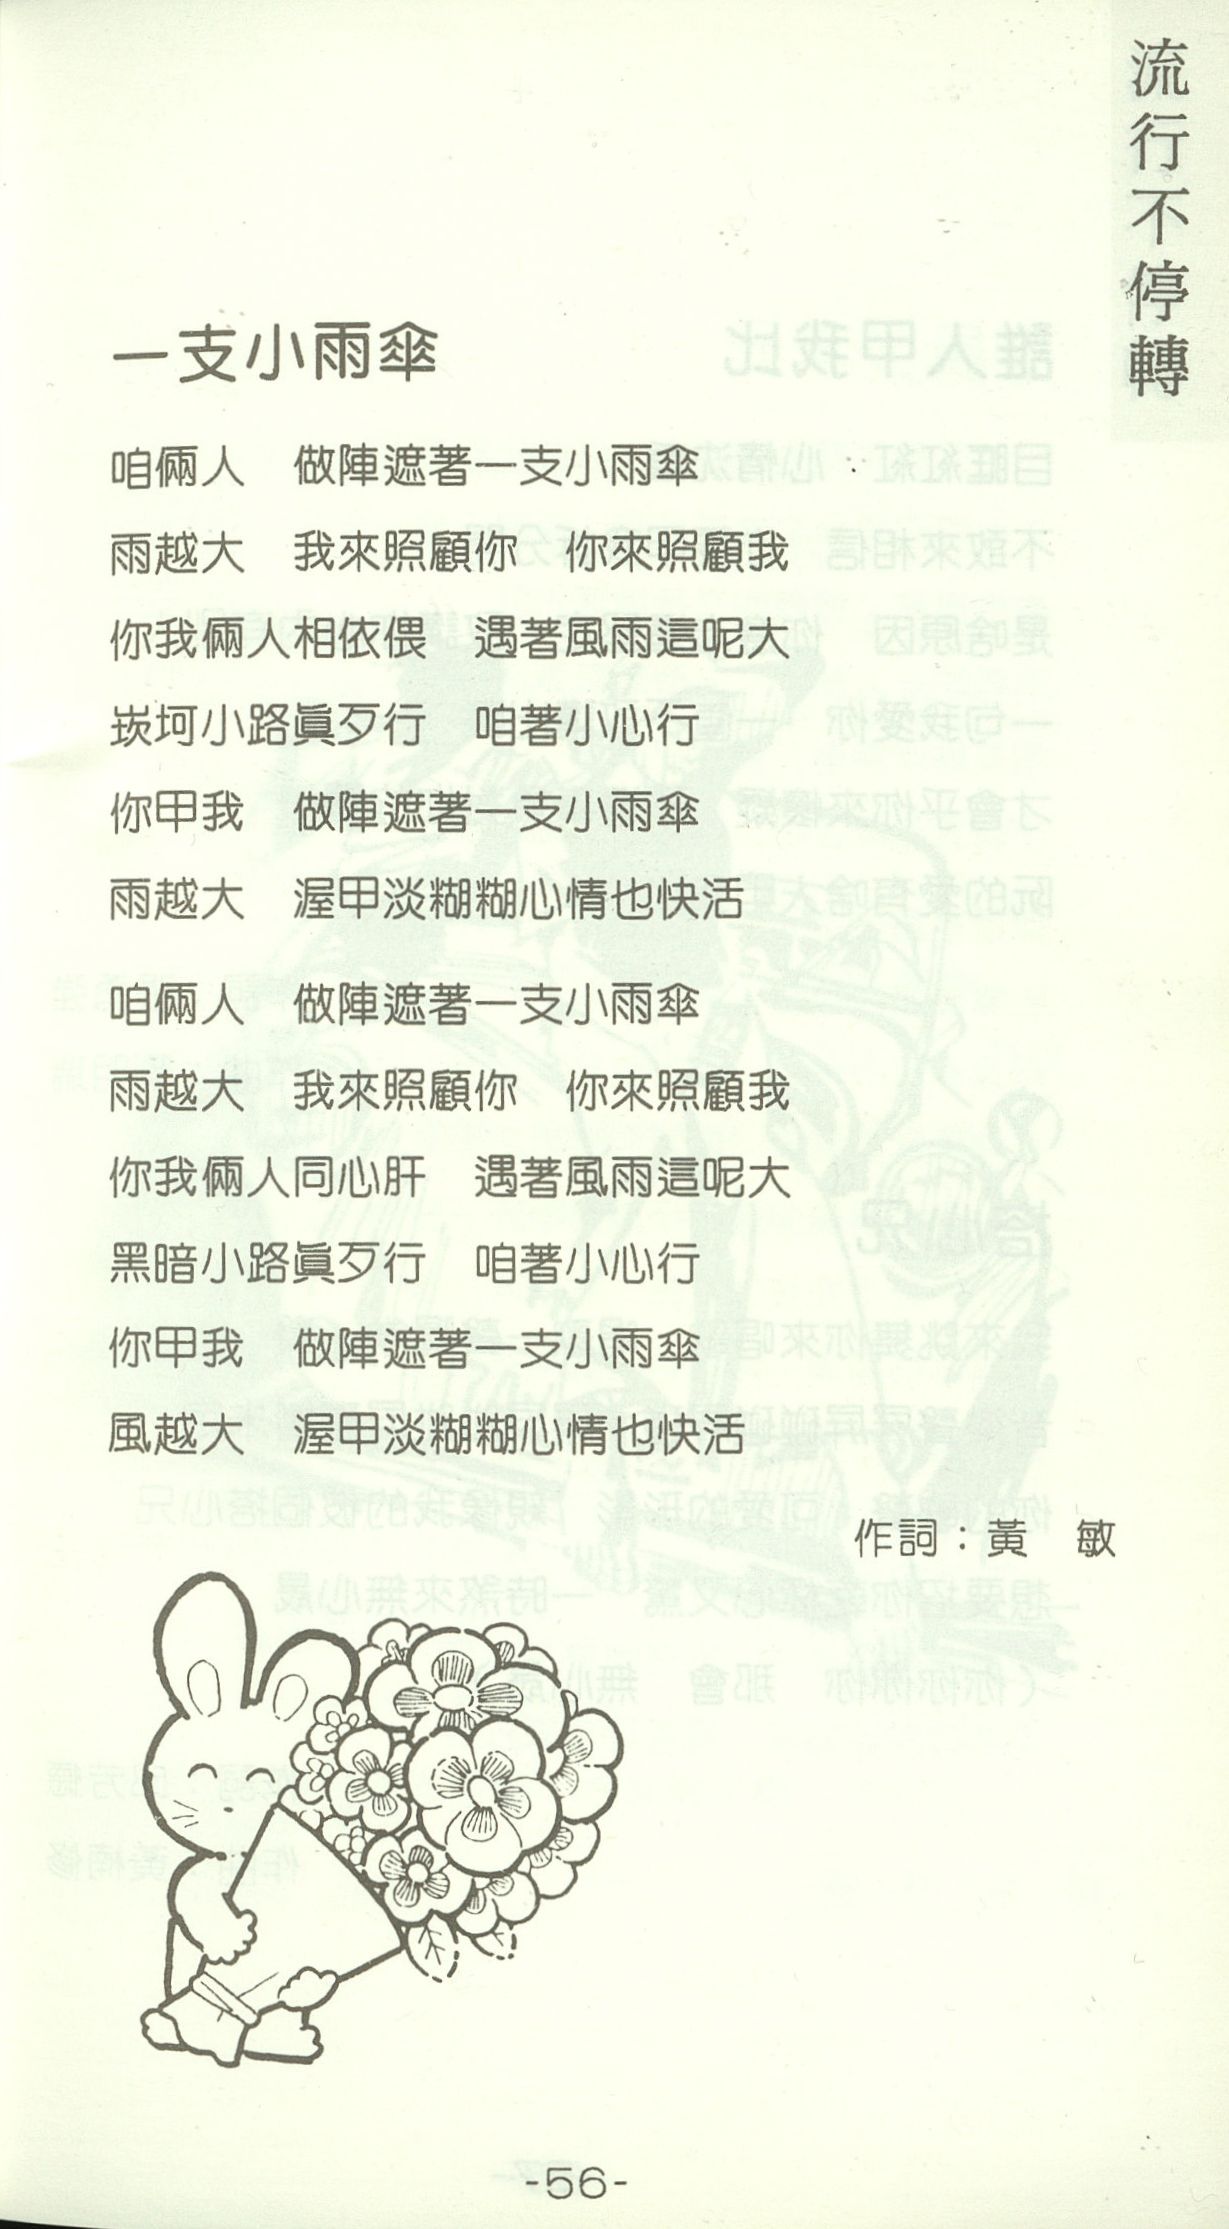 流行不停轉
一支小雨傘
咱倆人　做陣遮著一支小雨傘
雨越大　我來照顧你　你來照顧我
你我倆人相依偎　遇著風雨這呢大
崁坷小路眞歹行　咱著小心行
你甲我　做陣遮著一支小雨傘
雨越大　渥甲淡糊糊心情也快活
咱倆人　做陣遮著一支小雨傘
雨越大　我來照顧你　你來照顧我
你我倆人同心肝　遇著風雨這呢大
黑暗小路眞歹行　咱著小心行
你甲我　做陣遮著一支小雨傘
風越大　渥甲淡糊糊心情也快活
作詞：黃　敏
-56-